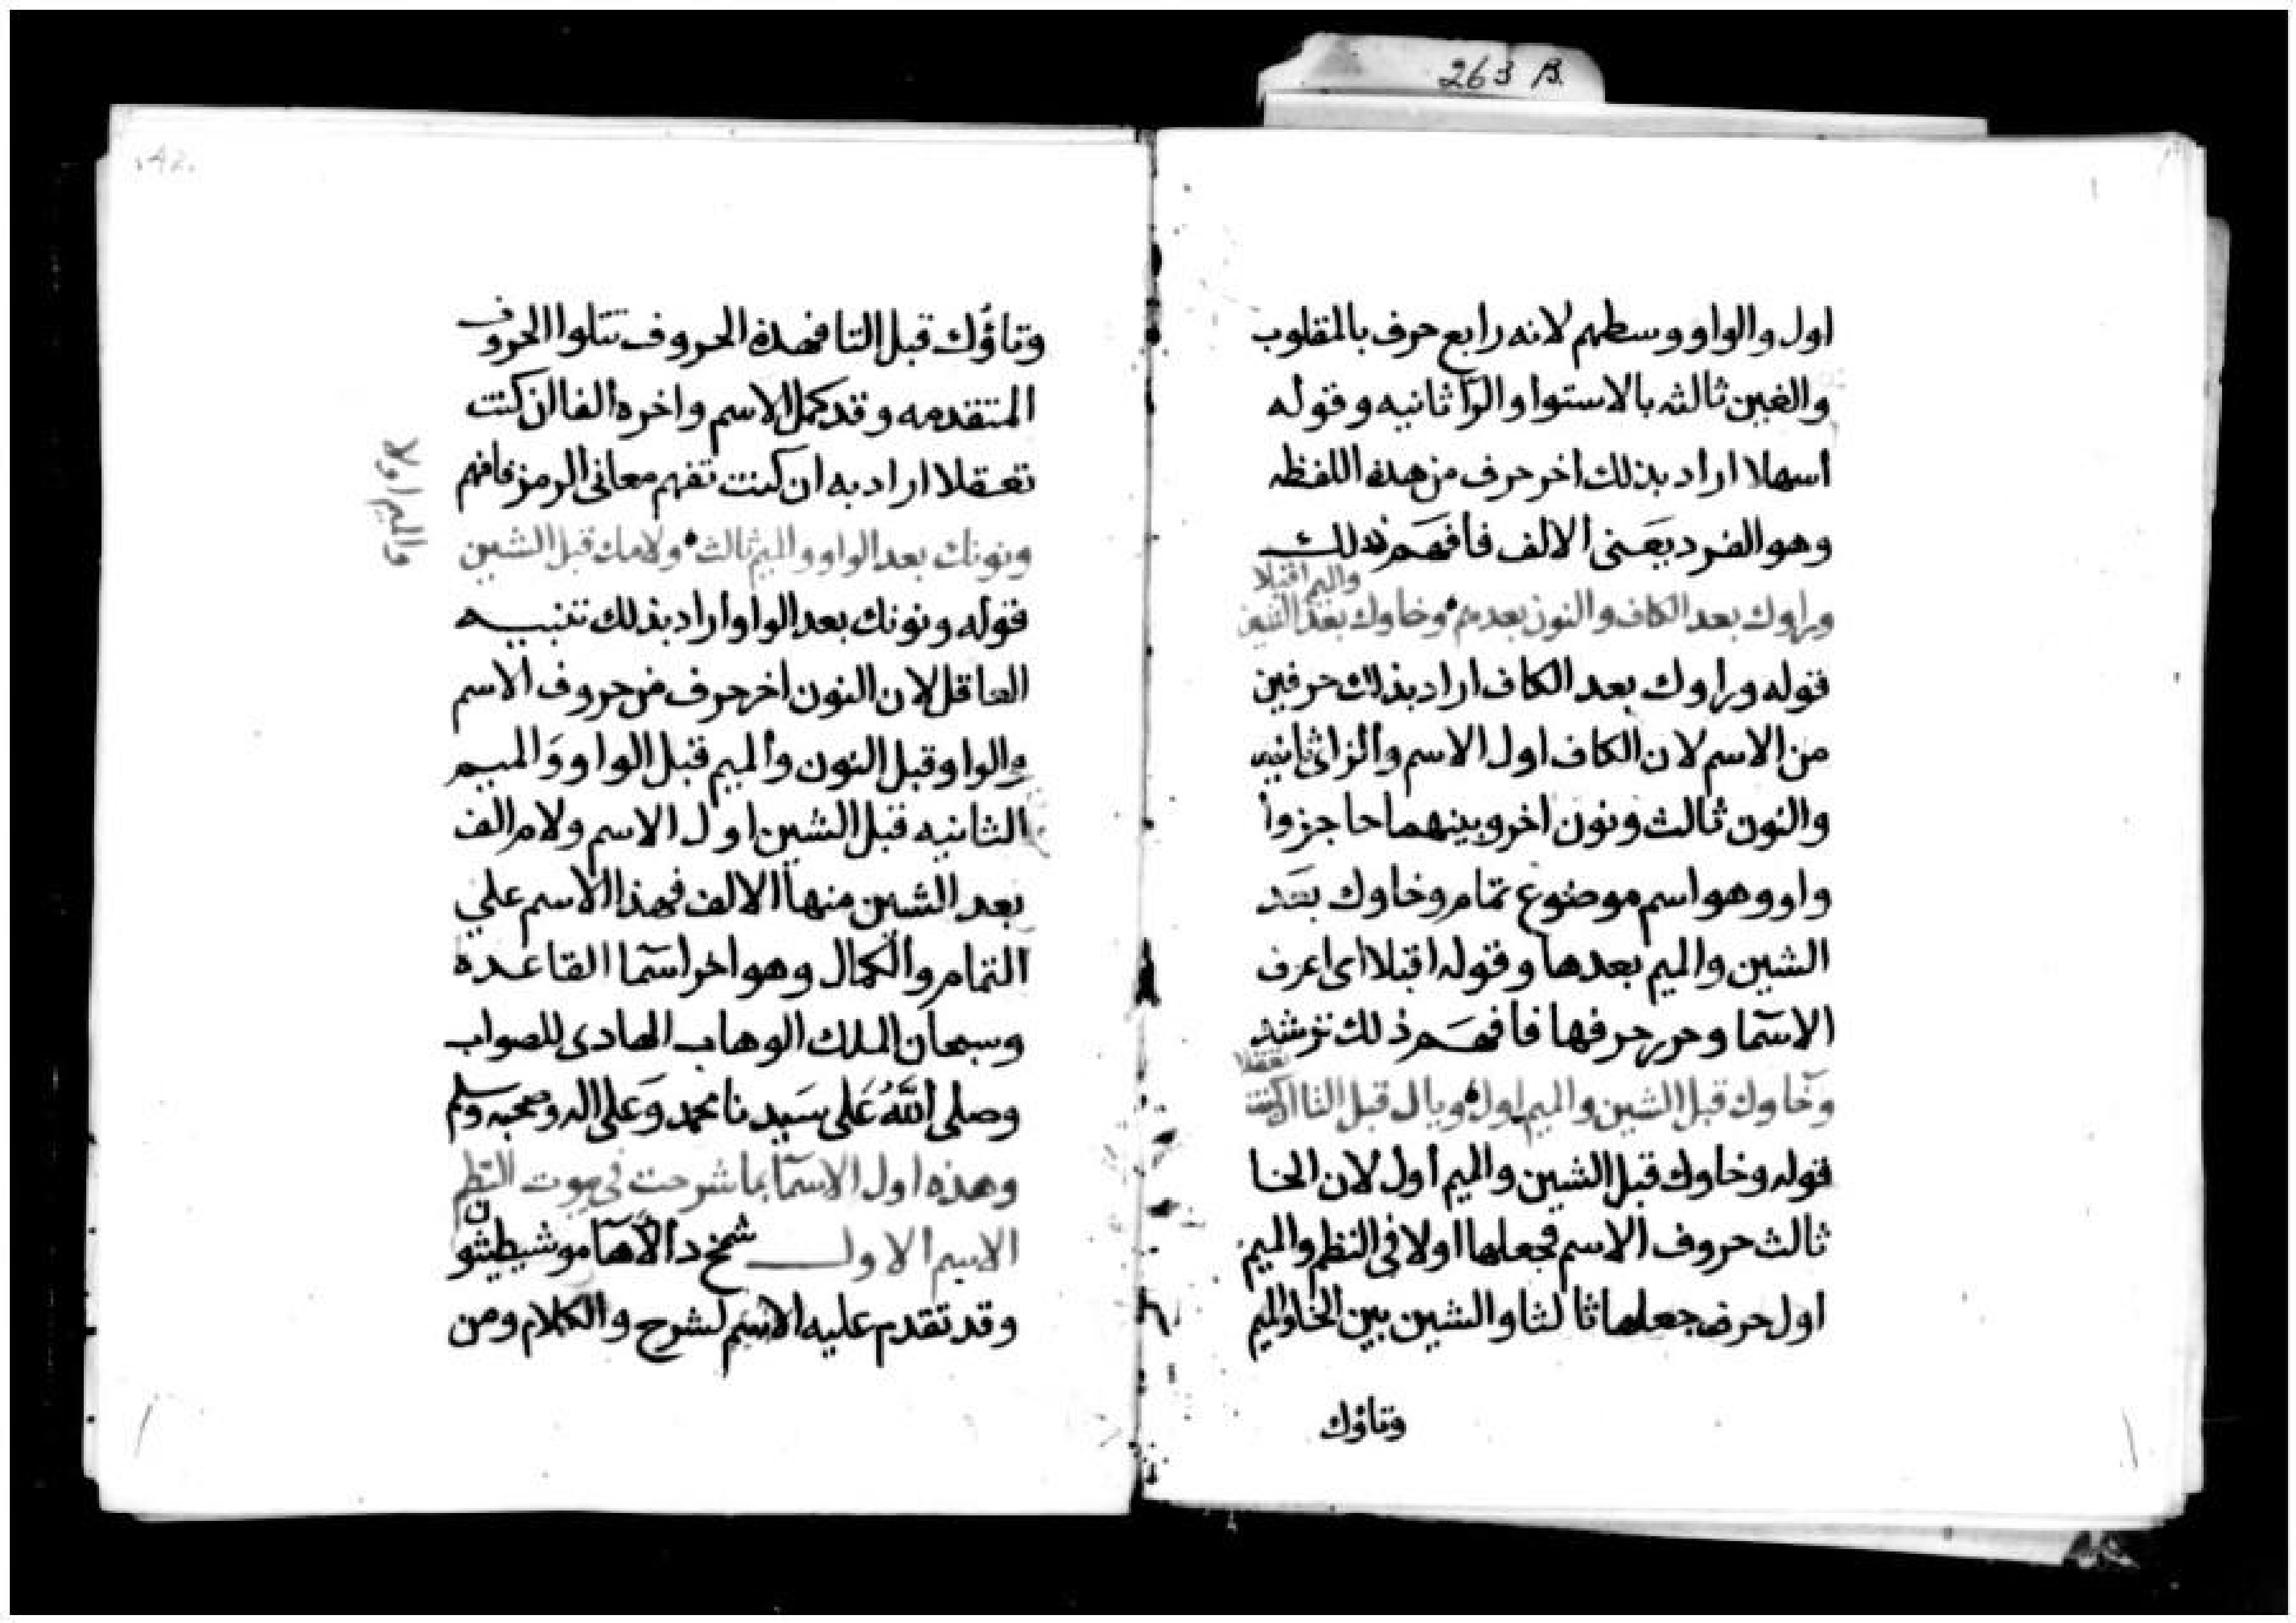 263 B.
اول والواو وسطهم لانه رابع حرف بالمقلوب
والغين ثالثه بالاستوا والرا ثانيه وقوله
اسهلا اراد بذلك اخر حرف من هذه اللفظه
وهو الفرد يعنى الالف فافهم ذلك
وراوك بعد الكاف والنون بعدهم وخاوك بعد الشين
والميم اقبلا
قوله وراوك بعد الكاف اراد بذلك حرفين
من الاسم لان الكاف اول الاسم والراى ثانيه
والنون ثالث ونون اخر وبينهما حاجزوا
واو وهو اسم موضوع تمام وخاوك بعد
الشين والميم بعدها وقوله اقبلا اى اعرف
الاسما وحرر حرفها فافهم ذلك ترشد
وخاوك قبل الشين والميم اول وبال قبل التا ان كنت
تعقلا
قوله وخاوك قبل الشين والميم اول لان الخا
ثالث حروف الاسم فجعلها اولا فى النظم والميم
اول حرف جعلها ثالثا والشين بين الخا والميم
وتاؤك
42
وتاؤك قبل التا فهذه الحروف تتلوا الحروف
المتقدمه وقد كمل الاسم واخره ألفا ان كنت
تعقلا اراد به ان كنت تفهم معانى الرمز فافهم
ونونك بعد الواو والميم ثالث ولامك قبل الشين
قوله ونونك بعد الواو اراد بذلك تنبيه
العاقل لان النون اخر حرف من حروف الاسم
والواو قبل النون والميم قبل الواو والميم
الثانيه قبل الشين اول الاسم ولام الف
بعد الشين منها الالف فهذا الاسم علي
التمام والكمال وهو اخر اسما القاعده
وسبحان الملك الوهاب الهادى للصواب
وصلى الله على سيدنا محمد وعلى اله وصحبه وسلم
وهذه اول الاسما بما شرحت فى بيوت النظم
الاسم الاول شمخ د الاها مو شيطيثو
ن
وقد تقدم عليه الاسم لشرح والكلام ومن